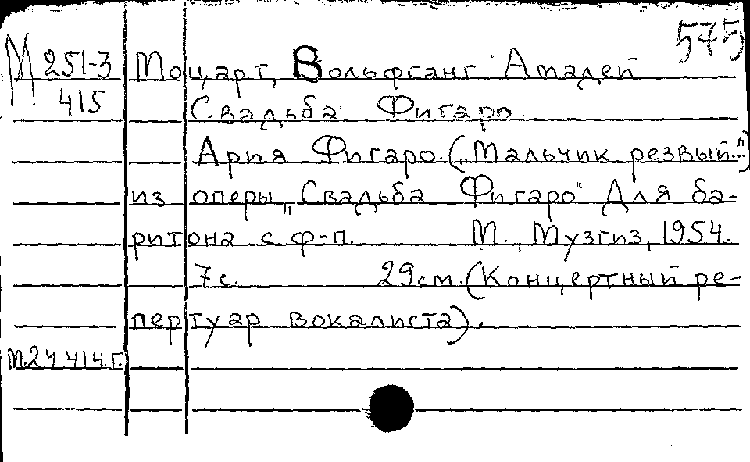 575
М 251-3 Моцарт, Вольфганг Амадей
415 Свадьба Фигаро
Ария Фигаро („Мальчик резвый...")
из оперы „Свадьба Фигаро" Для ба-
ритона с ф-п. М., Музгиз, 1954.
7с. 29см. (Концертный ре-
пертуар вокалиста).
М.24 414 Г.